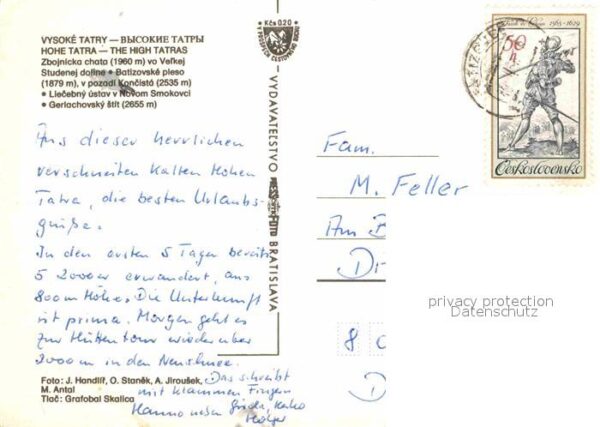 VYSOKÉ TATRY — ВЫСОКИЕ ТАТРЫ
HOHE TATRA — THE HIGH TATRAS
Zbojnícka chata (1960 m) vo Veľkej
Studenej doline • Batizovské pleso
(1879 m), v pozadí Končistá (2535 m)
• Liečebný ústav v Novom Smokovci
• Gerlachovský štít (2655 m)
Kčs 0,20
Aus dieser herrlichen
verschneiten kalten Hohen
Tatra, die besten Urlaubs-
grüße.
In den ersten 5 Tagen bereits
5 2000er erwandert, aus
800m Höhe. Die Unterkunft
ist prima. Morgen geht es
zur Hüttentour wieder über
2000m in den Neuschnee.
Das schreibt
mit klammen Fingern
Hanno
Holger
Foto: J. Handlíř, O. Staněk, A. Jiroušek,
M. Antal
Tlač: Grafobal Skalica
VYDAVATEĽSTVO
BRATISLAVA
Fam.
M. Feller
Am
8
1565-1629
50
h
Československo
privacy protection
Datenschutz